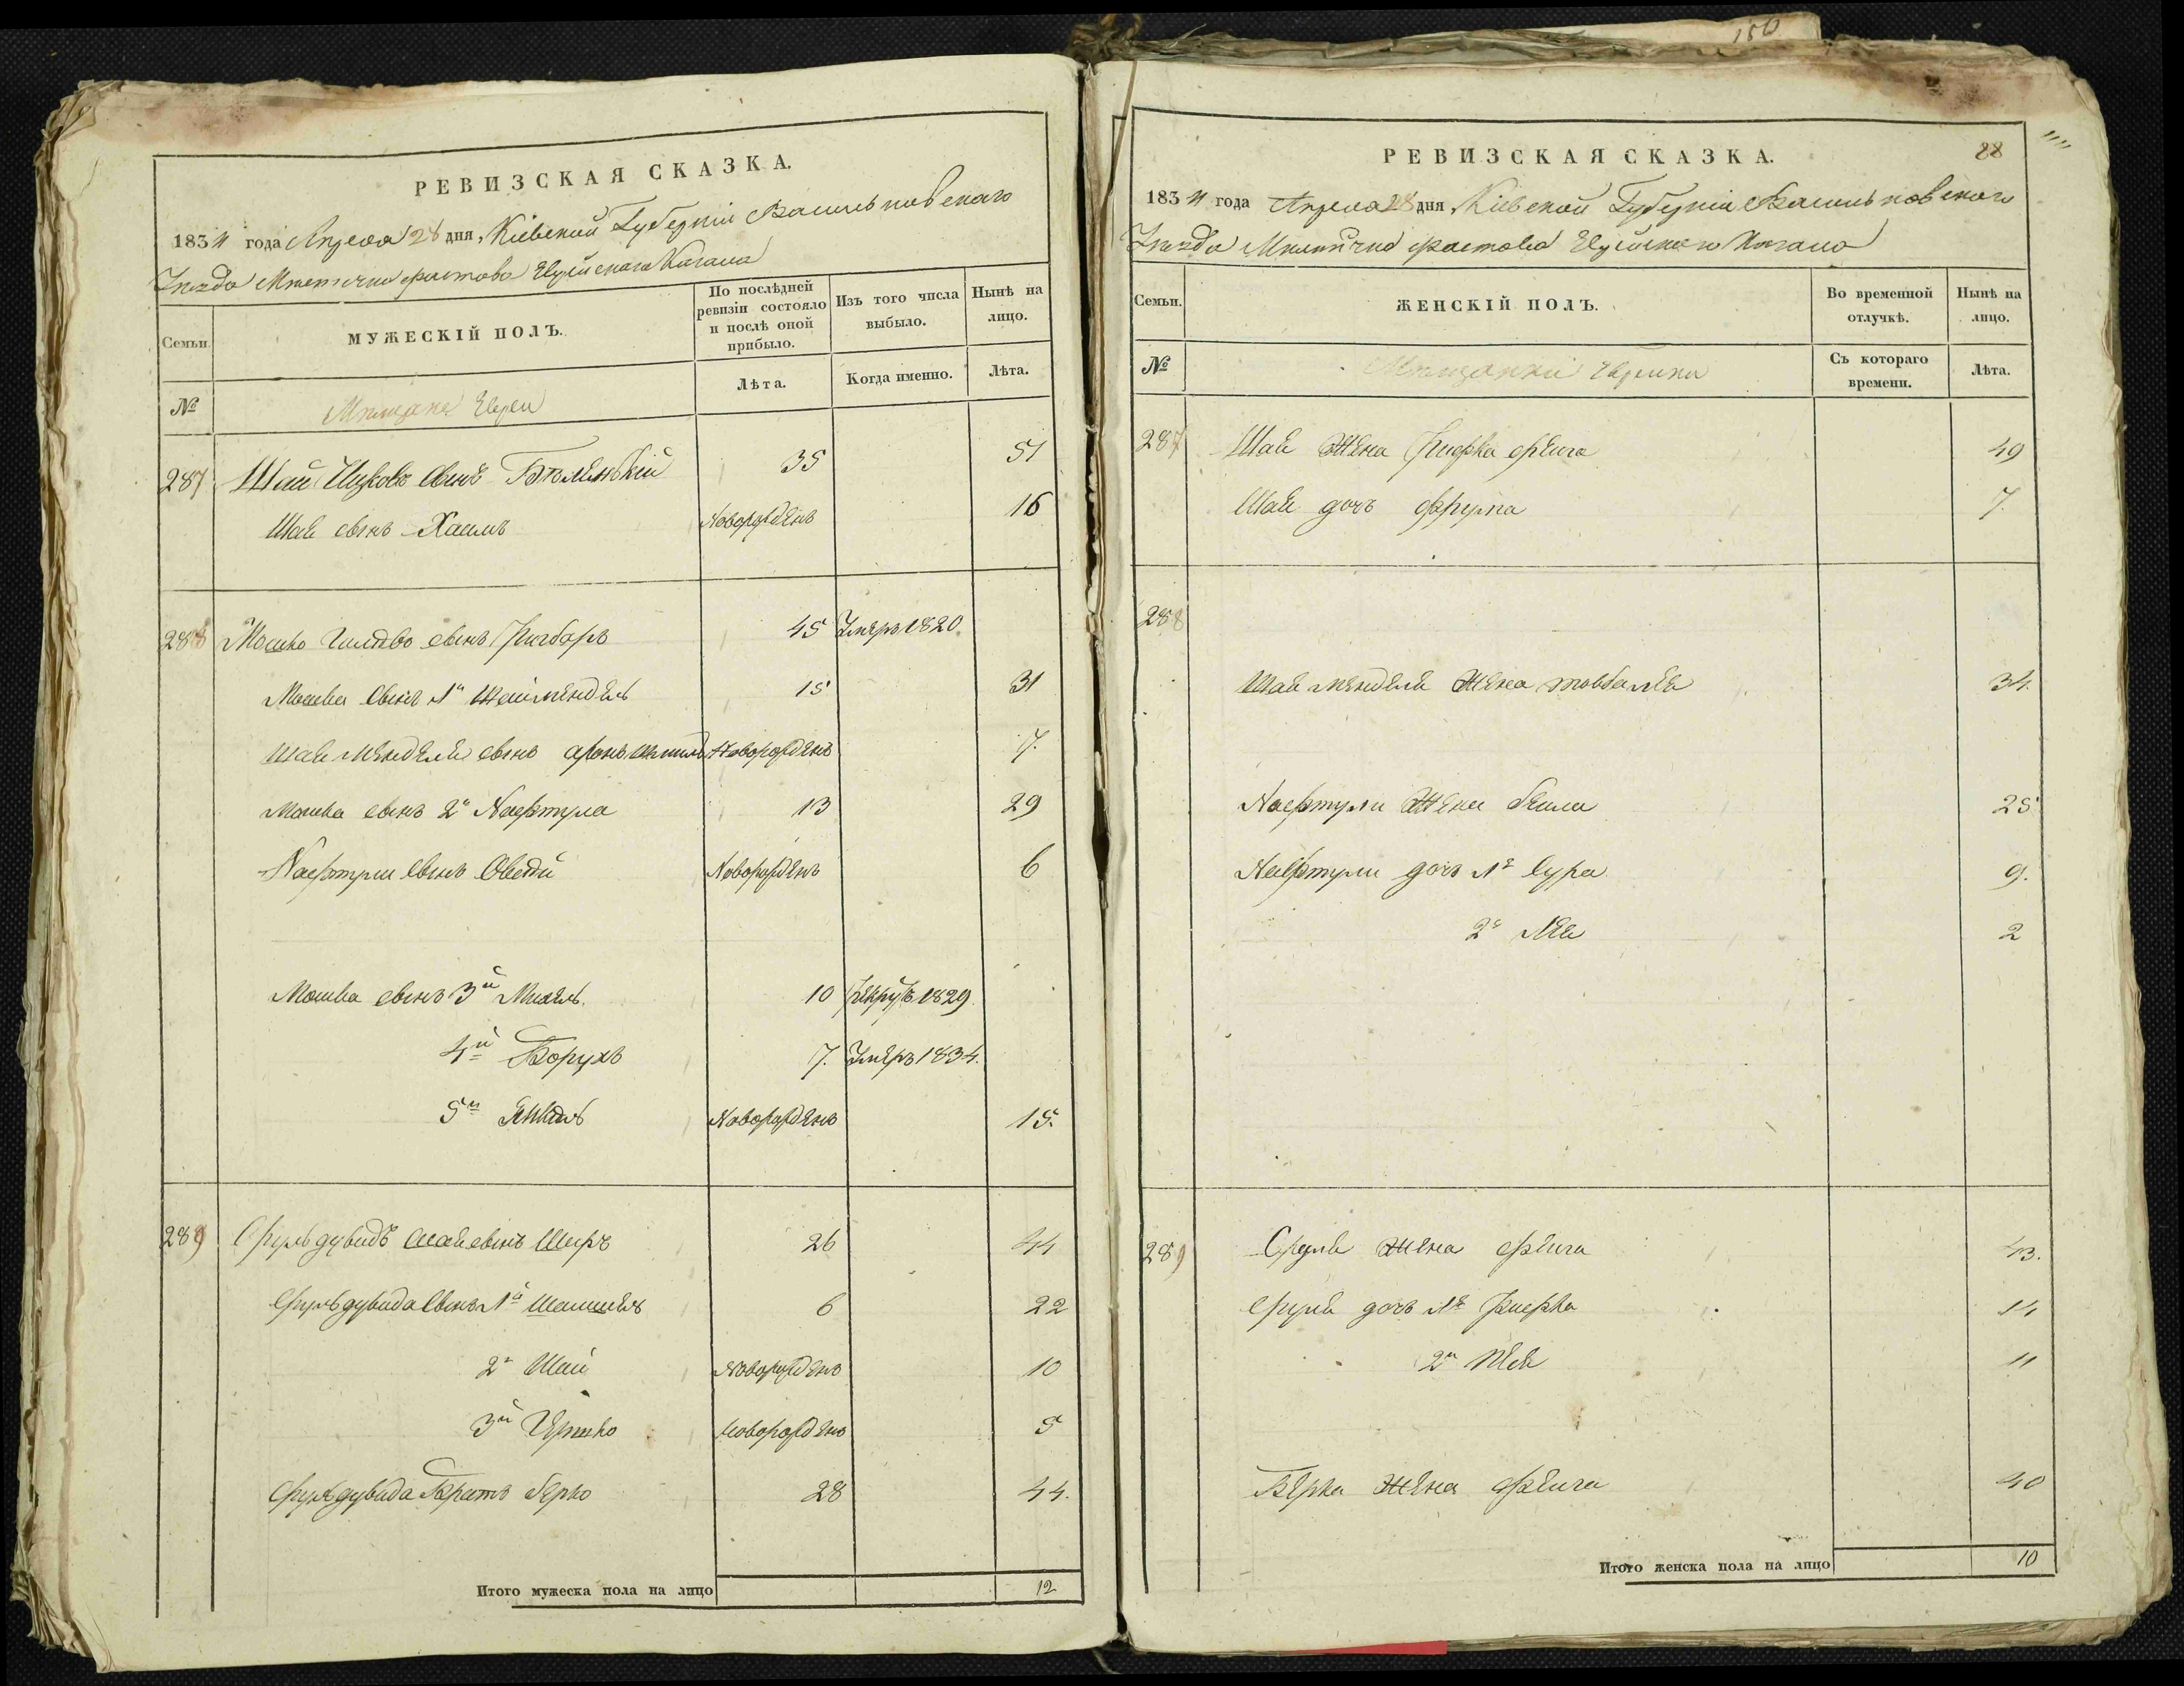 150
РЕВИЗСКАЯ СКАЗКА.
1834 года Апреля 28 дня, Кіевской Губерніи Васильковскаго
Уезда Местечка Фастова Еврейскаго Кагала
Семьи.
МУЖЕСКІЙ ПОЛЪ.
По послѣдней ревизіи состояло и послѣ оной прибыло.
Изъ того числа выбыло.
Нынѣ на лицо.
№
Мещане Евреи
Лѣта.
Когда именно.
Лѣта.
287 Шай Ицковъ сынъ Беленький 35 51
Шаи сынъ Хаимъ Новорожденъ 16
288 Мошко сынъ 45 Умеръ 1820.
Мошка сынъ 1й Шаймендель 15 31
Шаи Менделя сынъ Аронъ Шмиль Новорожденъ 7.
Мошка сынъ 2й Нафтула 13 29
Нафтули сынъ Овсей Новорожденъ 6
Мошка сынъ 3й Михель. 10 Рекрутъ 1829
4й Борухъ 7. Умеръ 1834.
5й Янкель Новорожденъ 15.
289 Сруль дувидъ сынъ Шеръ 26 44
Сруль дувида сынъ 1й 6 22
2й Шай Новорожденъ 10
3й Гершко Новорожденъ 5
Сруль дувида Братъ Берко 28 44.
Итого мужеска пола на лицо 12
РЕВИЗСКАЯ СКАЗКА.
88
1834 года Апреля 28 дня, Кіевской Губерніи Васильковскаго
Уезда Местечка Фастова Еврейскаго Кагала
Семьи.
ЖЕНСКІЙ ПОЛЪ.
Во временной отлучкѣ.
Нынѣ на лицо.
№
Мещанки Еврейки
Съ котораго времени.
Лѣта.
287 Шаи жена Ривка Фейга 49
Шаи дочь Фрума 7.
288
Шаи Менделя жена Товба Лея 34.
Нафтули жена Бейла 25
Нафтули дочь 1я Сура 9.
2я Лея 2
289 Сруля жена Фейга 43.
Сруля дочь 1я Ривка 14
2я 11
Берка жена Фейга 40
Итого женска пола на лицо 10